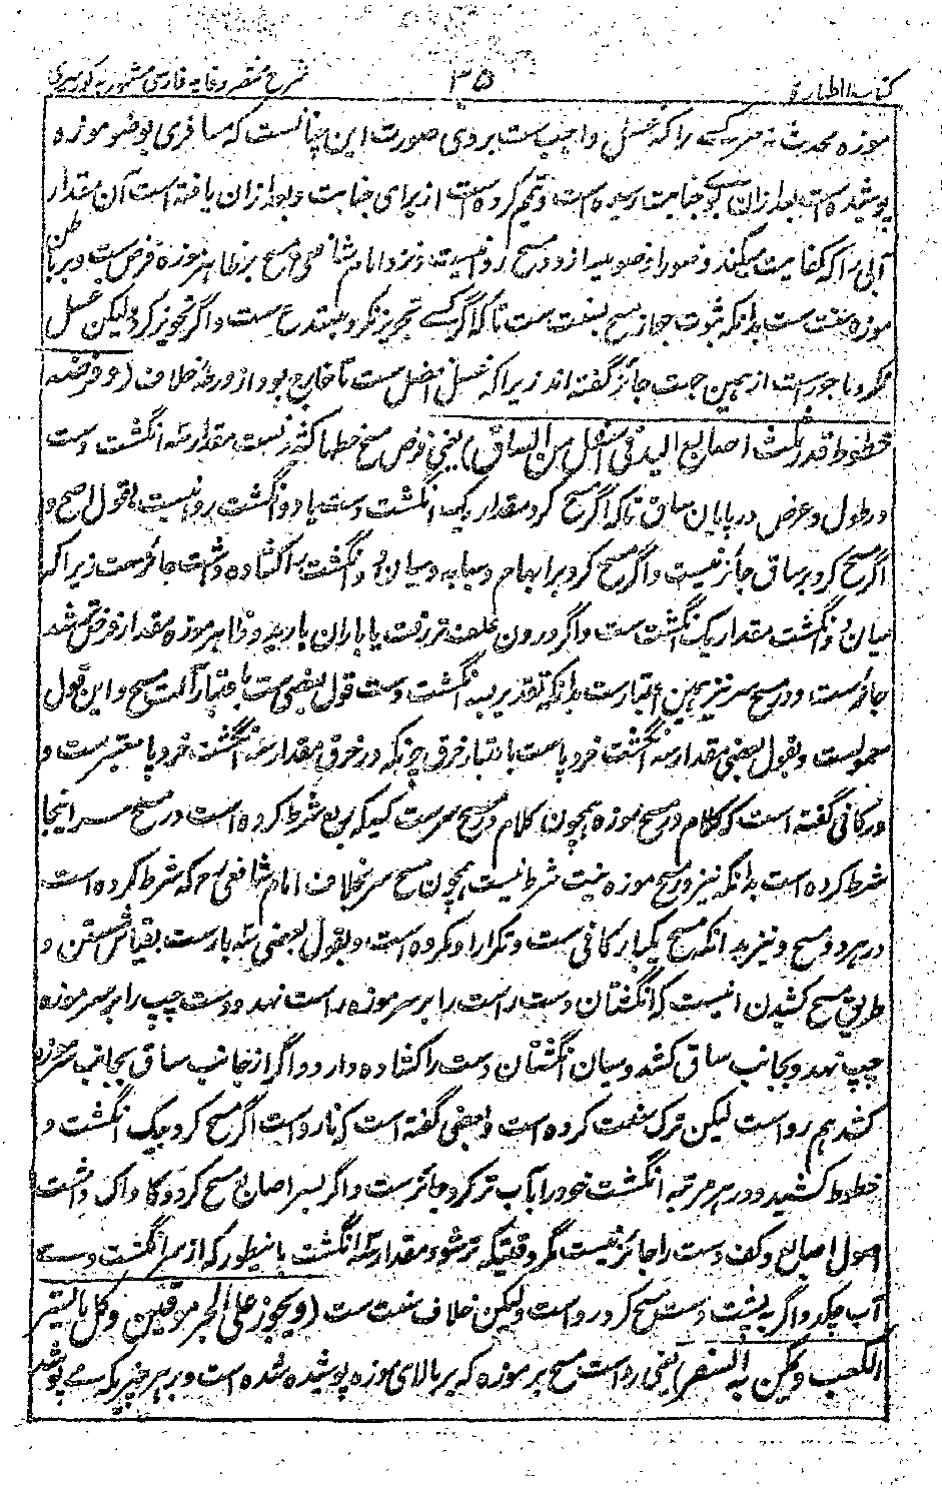 کتاب الطهارة ۳۵ شرح مختصر وقایه فارسی مشهور به کورسیری
موزه محدث نه مر کسے را که غسل واجب ست بروی صورت این چنانست که مسافری بوضو موزه
پوشیده است بعد ازان بوے جنابت رسیده است و تیمم کرده است از برای جنابت و بعد ازان یافته است آن مقدار
آبی را که کفایت میکند وضو را وضو سازد و مسح روا نیست و نزد امام شافعی رح مسح بر ظاهر موزه فرض ست و بر باطن
موزه سنت ست بدانکه ثبوت جواز مسح بسنت ست تا که اگر کسے تجویز نکرد مبتدع ست و اگر تجویز کرد لیکن غسل
کرد ماجورست از همین جهت جائز گفته اند زیرا که غسل افضل ست تا خارج بود از ورطهٔ خلاف (و فرضه
خطوط قدر ثلث اصابع الید من اسفل من الساق) یعنی فرض مسح خطها کشیدنست مقدار سه انگشت دست
در طول و عرض در پایان ساق تا که اگر مسح کرد مقدار یک انگشت دست یا دو انگشت روا نیست بقول اصح و
اگر مسح کرد بر ساق جائز نیست و اگر مسح کرد بر ابهام و سبابه و میان دو انگشت را کشاده داشت جائزست زیرا که
میان دو انگشت مقدار یک انگشت ست و اگر درون علف تر رفت یا باران بارید و ظاهر موزه مقدار فرض تر شد
جائزست و در مسح سر نیز همین اعتبارست بدانکه تقدیر بسه انگشت دست قول بعضی ست باعتبار آلت مسح و این قول
معمولست و بقول بعضی مقدار سه انگشت خرد پاست باعتبار خرق چنانکه در خرق مقدار سه انگشت خرد پا معتبرست و
در کافی گفته است که کلام در مسح موزه همچون کلام در مسح سرست کسیکه ربع شرط کرده است در مسح سر اینجا
شرط کرده است بدانکه نیز در مسح موزه نیت شرط نیست همچون مسح سر بخلاف امام شافعی رح که شرط کرده است
در هر دو مسح و نیز بدانکه مسح یکبار کافی ست و تکرار او مکروه است و بقول بعضی سه بارست بقیاس شستن و
طریق مسح کشیدن اینست که انگشتان دست راست را بر سر موزه راست نهد و دست چپ را بر سر موزه
چپ نهد و بجانب ساق کشد و میان انگشتان دست را کشاده دارد و اگر از جانب ساق بجانب سر موزه
کشد هم رواست لیکن ترک سنت کرده است و بعضی گفته است که نارواست اگر مسح کرد بیک انگشت و
خطوط کشید و در هر مرتبه انگشت خود را بآب تر کرد جائزست و اگر بسر اصابع مسح کرد و کاواک داشت
اصول اصابع و کف دست را جائز نیست مگر وقتیکه تر شود مقدار سه انگشت باینطور که از سر انگشت وے
آب چکد و اگر به پشت دست مسح کرد رواست و لیکن خلاف سنت ست (و یجوز علی الجرموقین و کل ما یستر
الکعب و یمکن به السفر) یعنی رواست مسح بر موزه که بر بالای موزه پوشیده شده است و بر هر چیزیکه مے پوشد